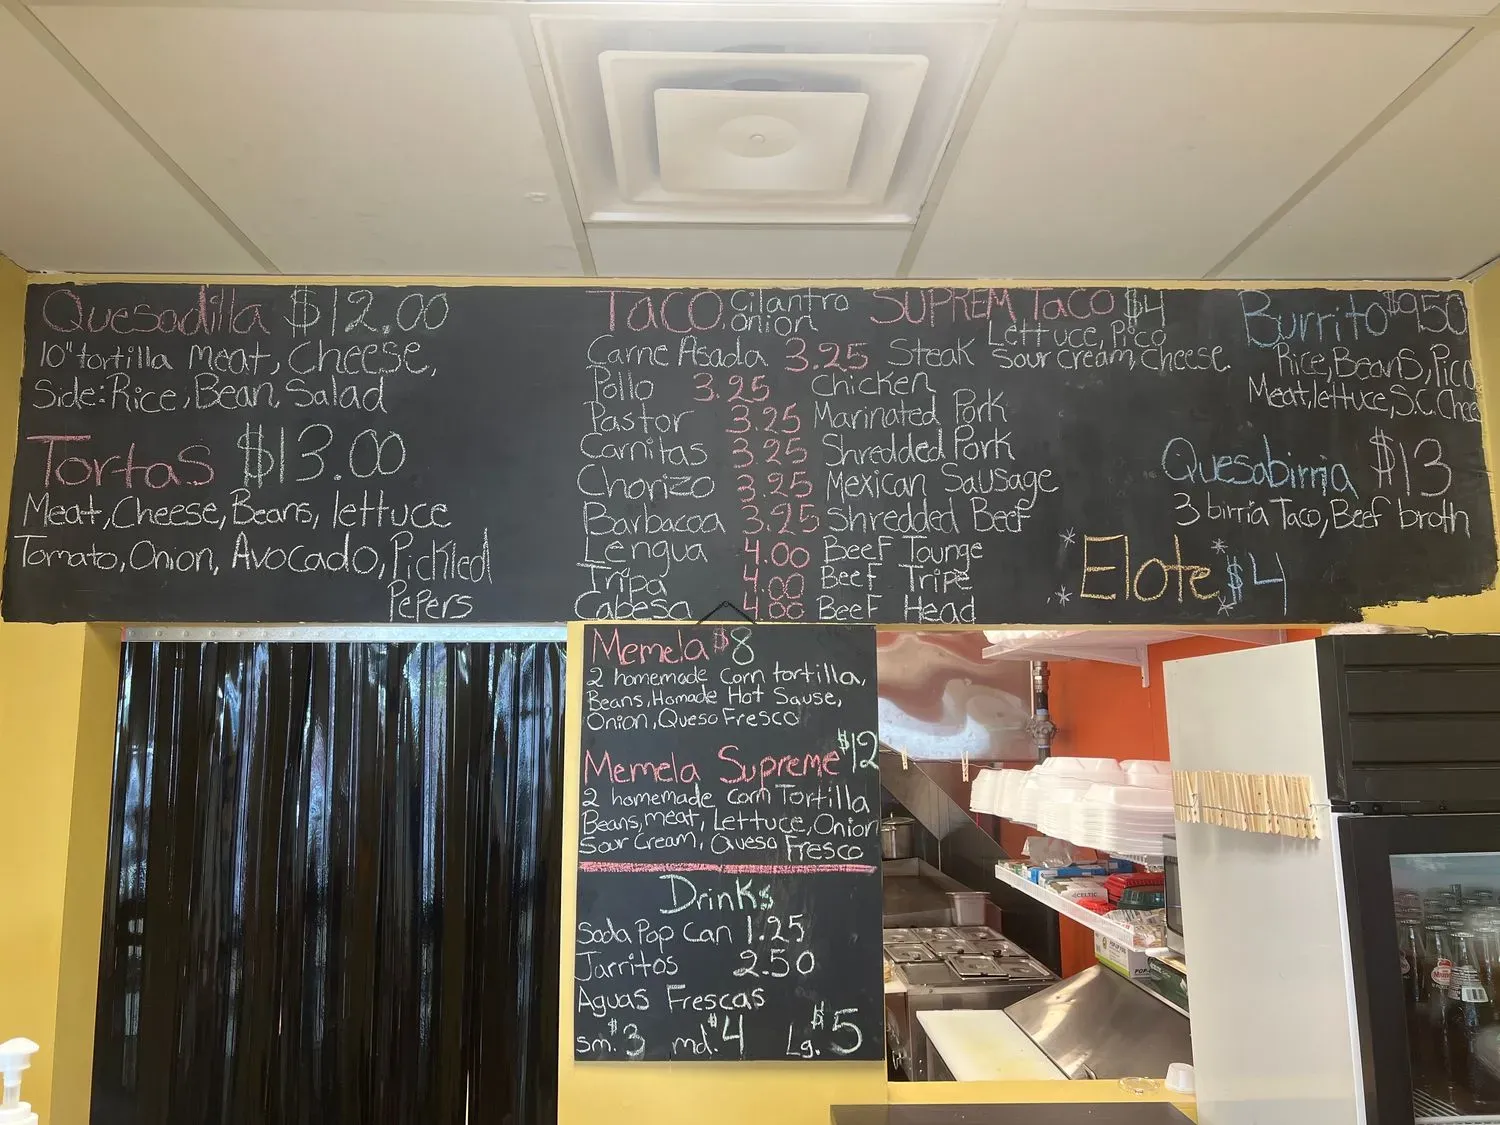 Quesadilla $12.00
10" tortilla Meat, Cheese,
Side: Rice, Bean, Salad
Tortas $13.00
Meat, Cheese, Beans, lettuce
Tomato, Onion, Avocado, Pickled
Pepers
Taco Cilantro
onion
Carne Asada 3.25 Steak
Pollo 3.25 Chicken
Pastor 3.25 Marinated Pork
Carnitas 3.25 Shredded Pork
Chorizo 3.25 Mexican Sausage
Barbacoa 3.25 Shredded Beef
Lengua 4.00 Beef Tounge
Tripa 4.00 Beef Tripe
Cabesa 4.00 Beef Head
SUPREM Taco $4
Lettuce, Pico
Sour cream, cheese.
Burrito $9.50
Rice, Beans, Pico
Meat, lettuce, S.C. Chee
Quesabirria $13
3 birria Taco, Beef broth
Elote $4
Memela $8
2 homemade corn tortilla,
Beans, Homade Hot Sause,
Onion, Queso Fresco
Memela Supreme $12
2 homemade corn Tortilla
Beans, meat, Lettuce, Onion
Sour Cream, Queso Fresco
Drinks
Soda Pop Can 1.25
Jarritos 2.50
Aguas Frescas
sm. $3 md. $4 Lg. $5
CELTIC